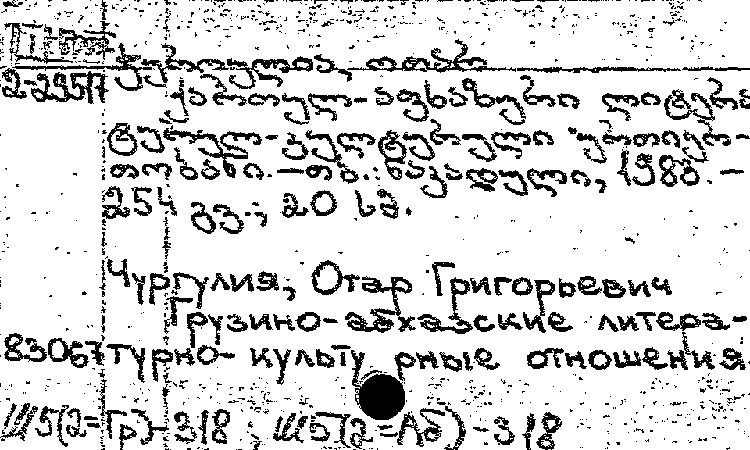 2-295/7 ჭურღულია, ოთარ
ქართულ-აფხაზური ლიტერა
ტურულ-კულტურული ურთიერ-
თობანი.—თბ.: ნაკადული, 198
254 გვ.; 20 სმ.
Чургулия, Отар Григорьевич
Грузино-абхазские литера-
83067 турно-культурные отношения
Ш5(2=Гр)-318; Ш5(2=Аб)-318